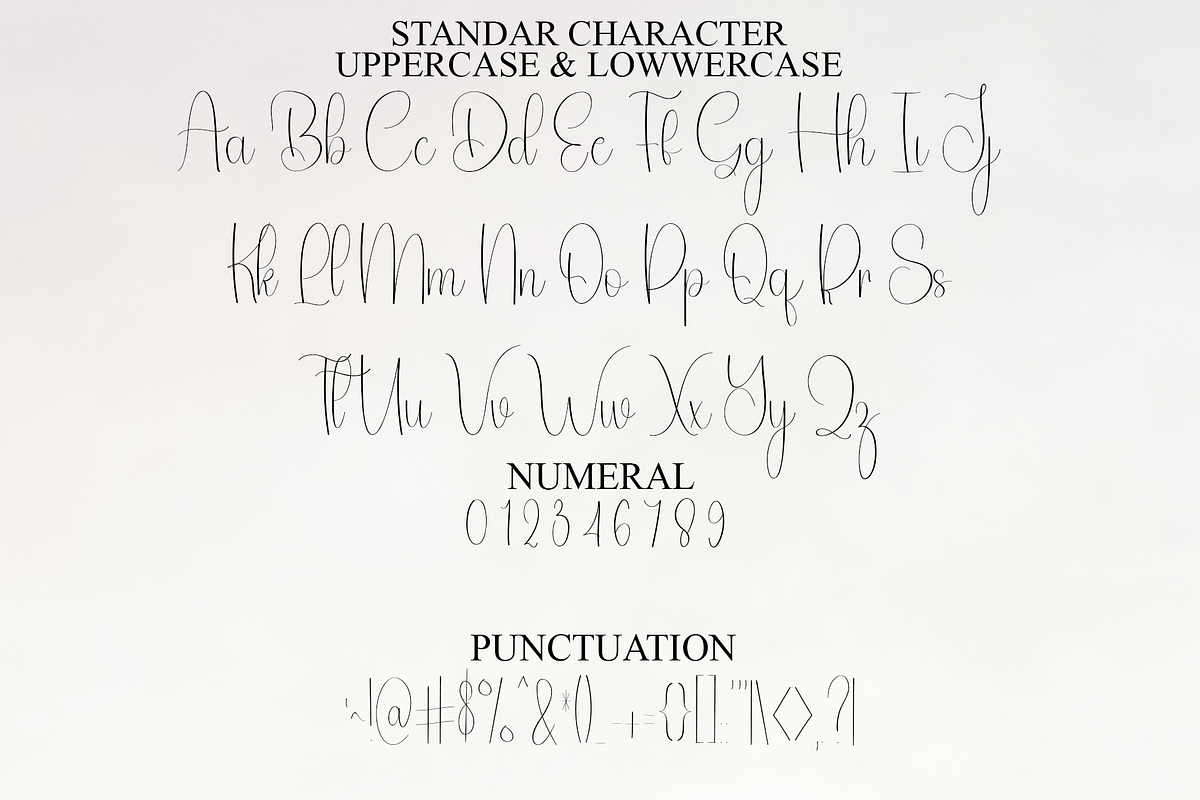 STANDAR CHARACTER
UPPERCASE & LOWWERCASE
Aa Bb Cc Dd Ee Ff Gg Hh Iı Jj
Kk Ll Mm Nn Oo Pp Qq Rr Ss
Tt Uu Vv Ww Xx Yy Zz
NUMERAL
0 1 2 3 4 6 7 8 9
PUNCTUATION
`~!@#$%^&*()_-+={}[]:;"'|\<>,.?/